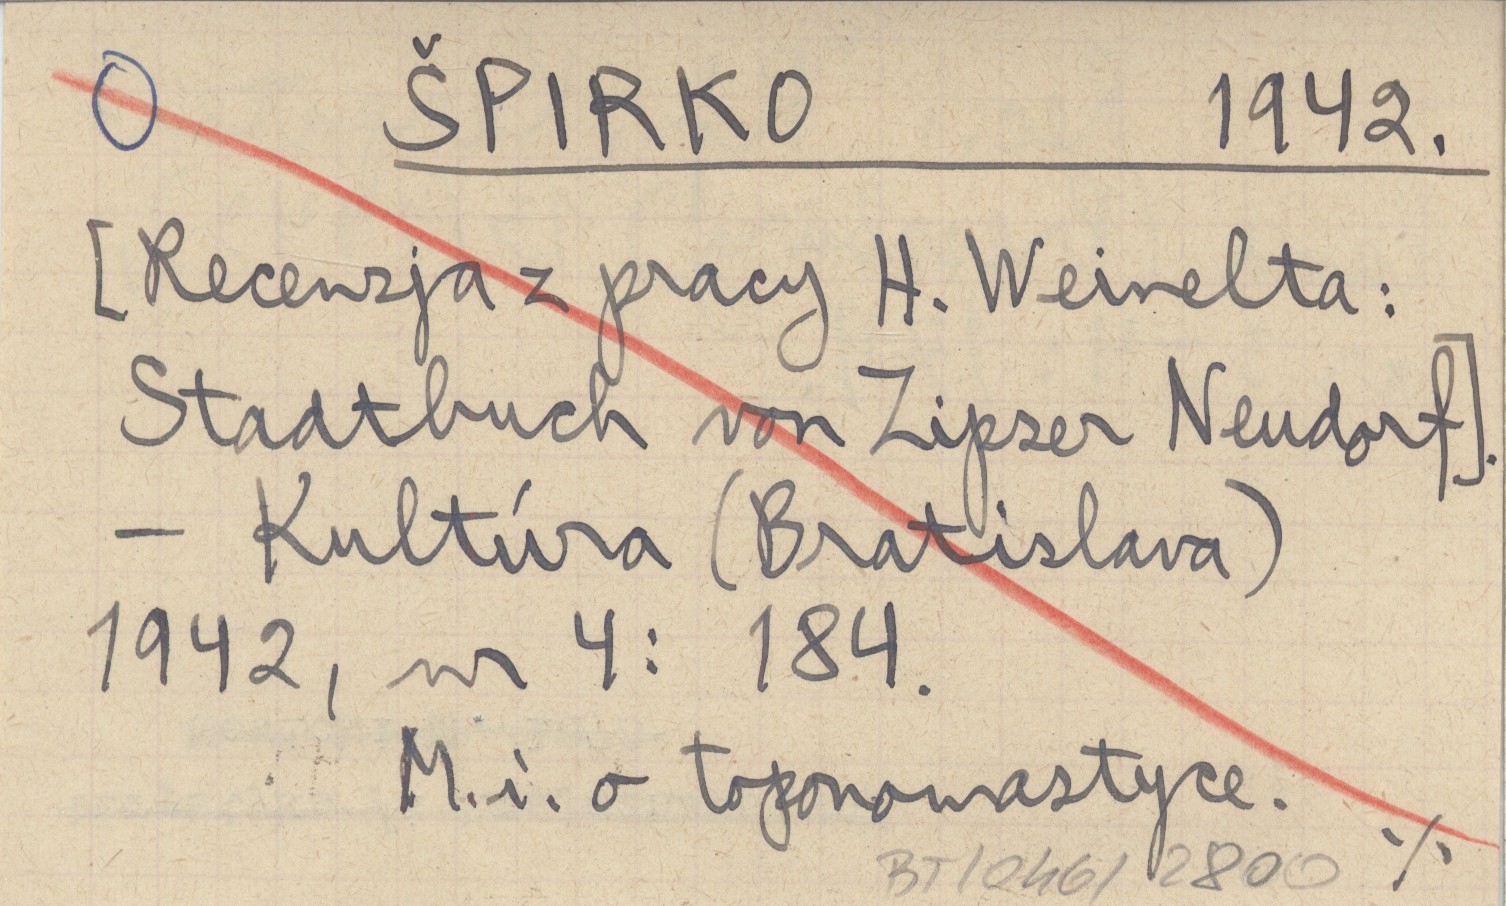 O ŠPIRKO 1942.
[Recenzja z pracy H. Weinelta:
Stadtbuch von Zipser Neudorf].
— Kultúra (Bratislava)
1942, nr 4: 184.
M.i. o toponomastyce.
BT/046/2800 ·/.